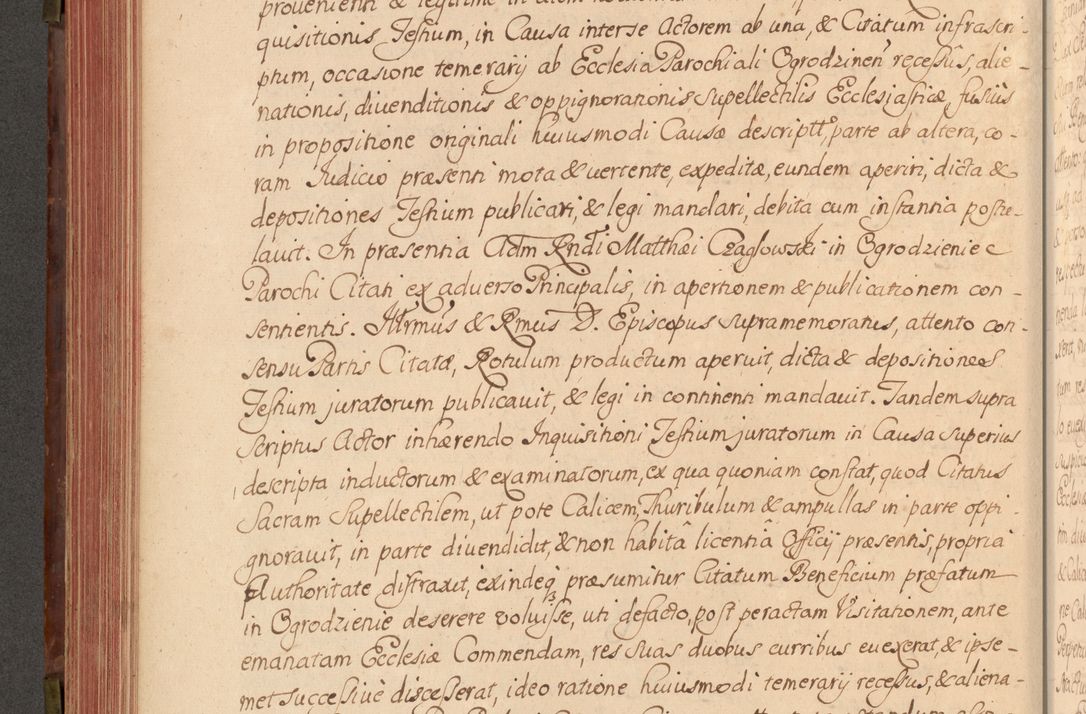 provenienti & legitime in
quisitionis Testium, in Causa interse Actorem ab una, & Citatum infrascri-
ptum, occasione temerarij ab Ecclesia Parochiali Ogrodzinen recessûs, alie-
nationis, divenditionis & oppignorationis Supellectilis Ecclesiasticæ, fusiùs
in propositione originali huiusmodi Causæ descriptt, parte ab altera, co-
ram Iudicio præsenti mota & vertente, expeditæ, eundem aperiri, dicta &
depositiones Testium publicari, & legi mandari, debita cum instantia postu-
lavit. In præsentia Adm Rndi Matthæi Czaglowski in Ogrodzienie
Parochi Citati ex adverso Principalis, in apertionem & publicationem con-
sentientis. Illrmus & Rmus D. Episcopus supramemoratus, attento con-
sensu Partis Citatæ, Rotulum productum aperuit, dicta & depositiones
Testium juratorum publicavit, & legi in continenti mandavit. Tandem supra
scriptus Actor inhærendo Inquisitioni Testium juratorum in Causa superius
descripta inductorum & examinatorum, ex qua quoniam constat, quod Citatus
Sacram Supellectilem, ut pote Calicem, Thuribulum & ampullas in parte oppi-
gnoravit, in parte divendidit, & non habitâ licentiâ Officij præsentis, propria
Authoritate distraxit, exindeq præsumitur Citatum Beneficium præfatum
in Ogrodzienie deserere voluisse, uti defacto, post peractam Visitationem, ante
emanatam Ecclesiæ Commendam, res suas duobus curribus evexerat, & ipse-
met successivè discesserat, ideo ratione huiusmodi temerarij recessus, & aliena-